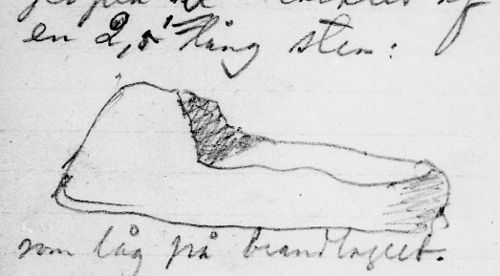 en 2,5' lång sten:
som låg på brandlagret.